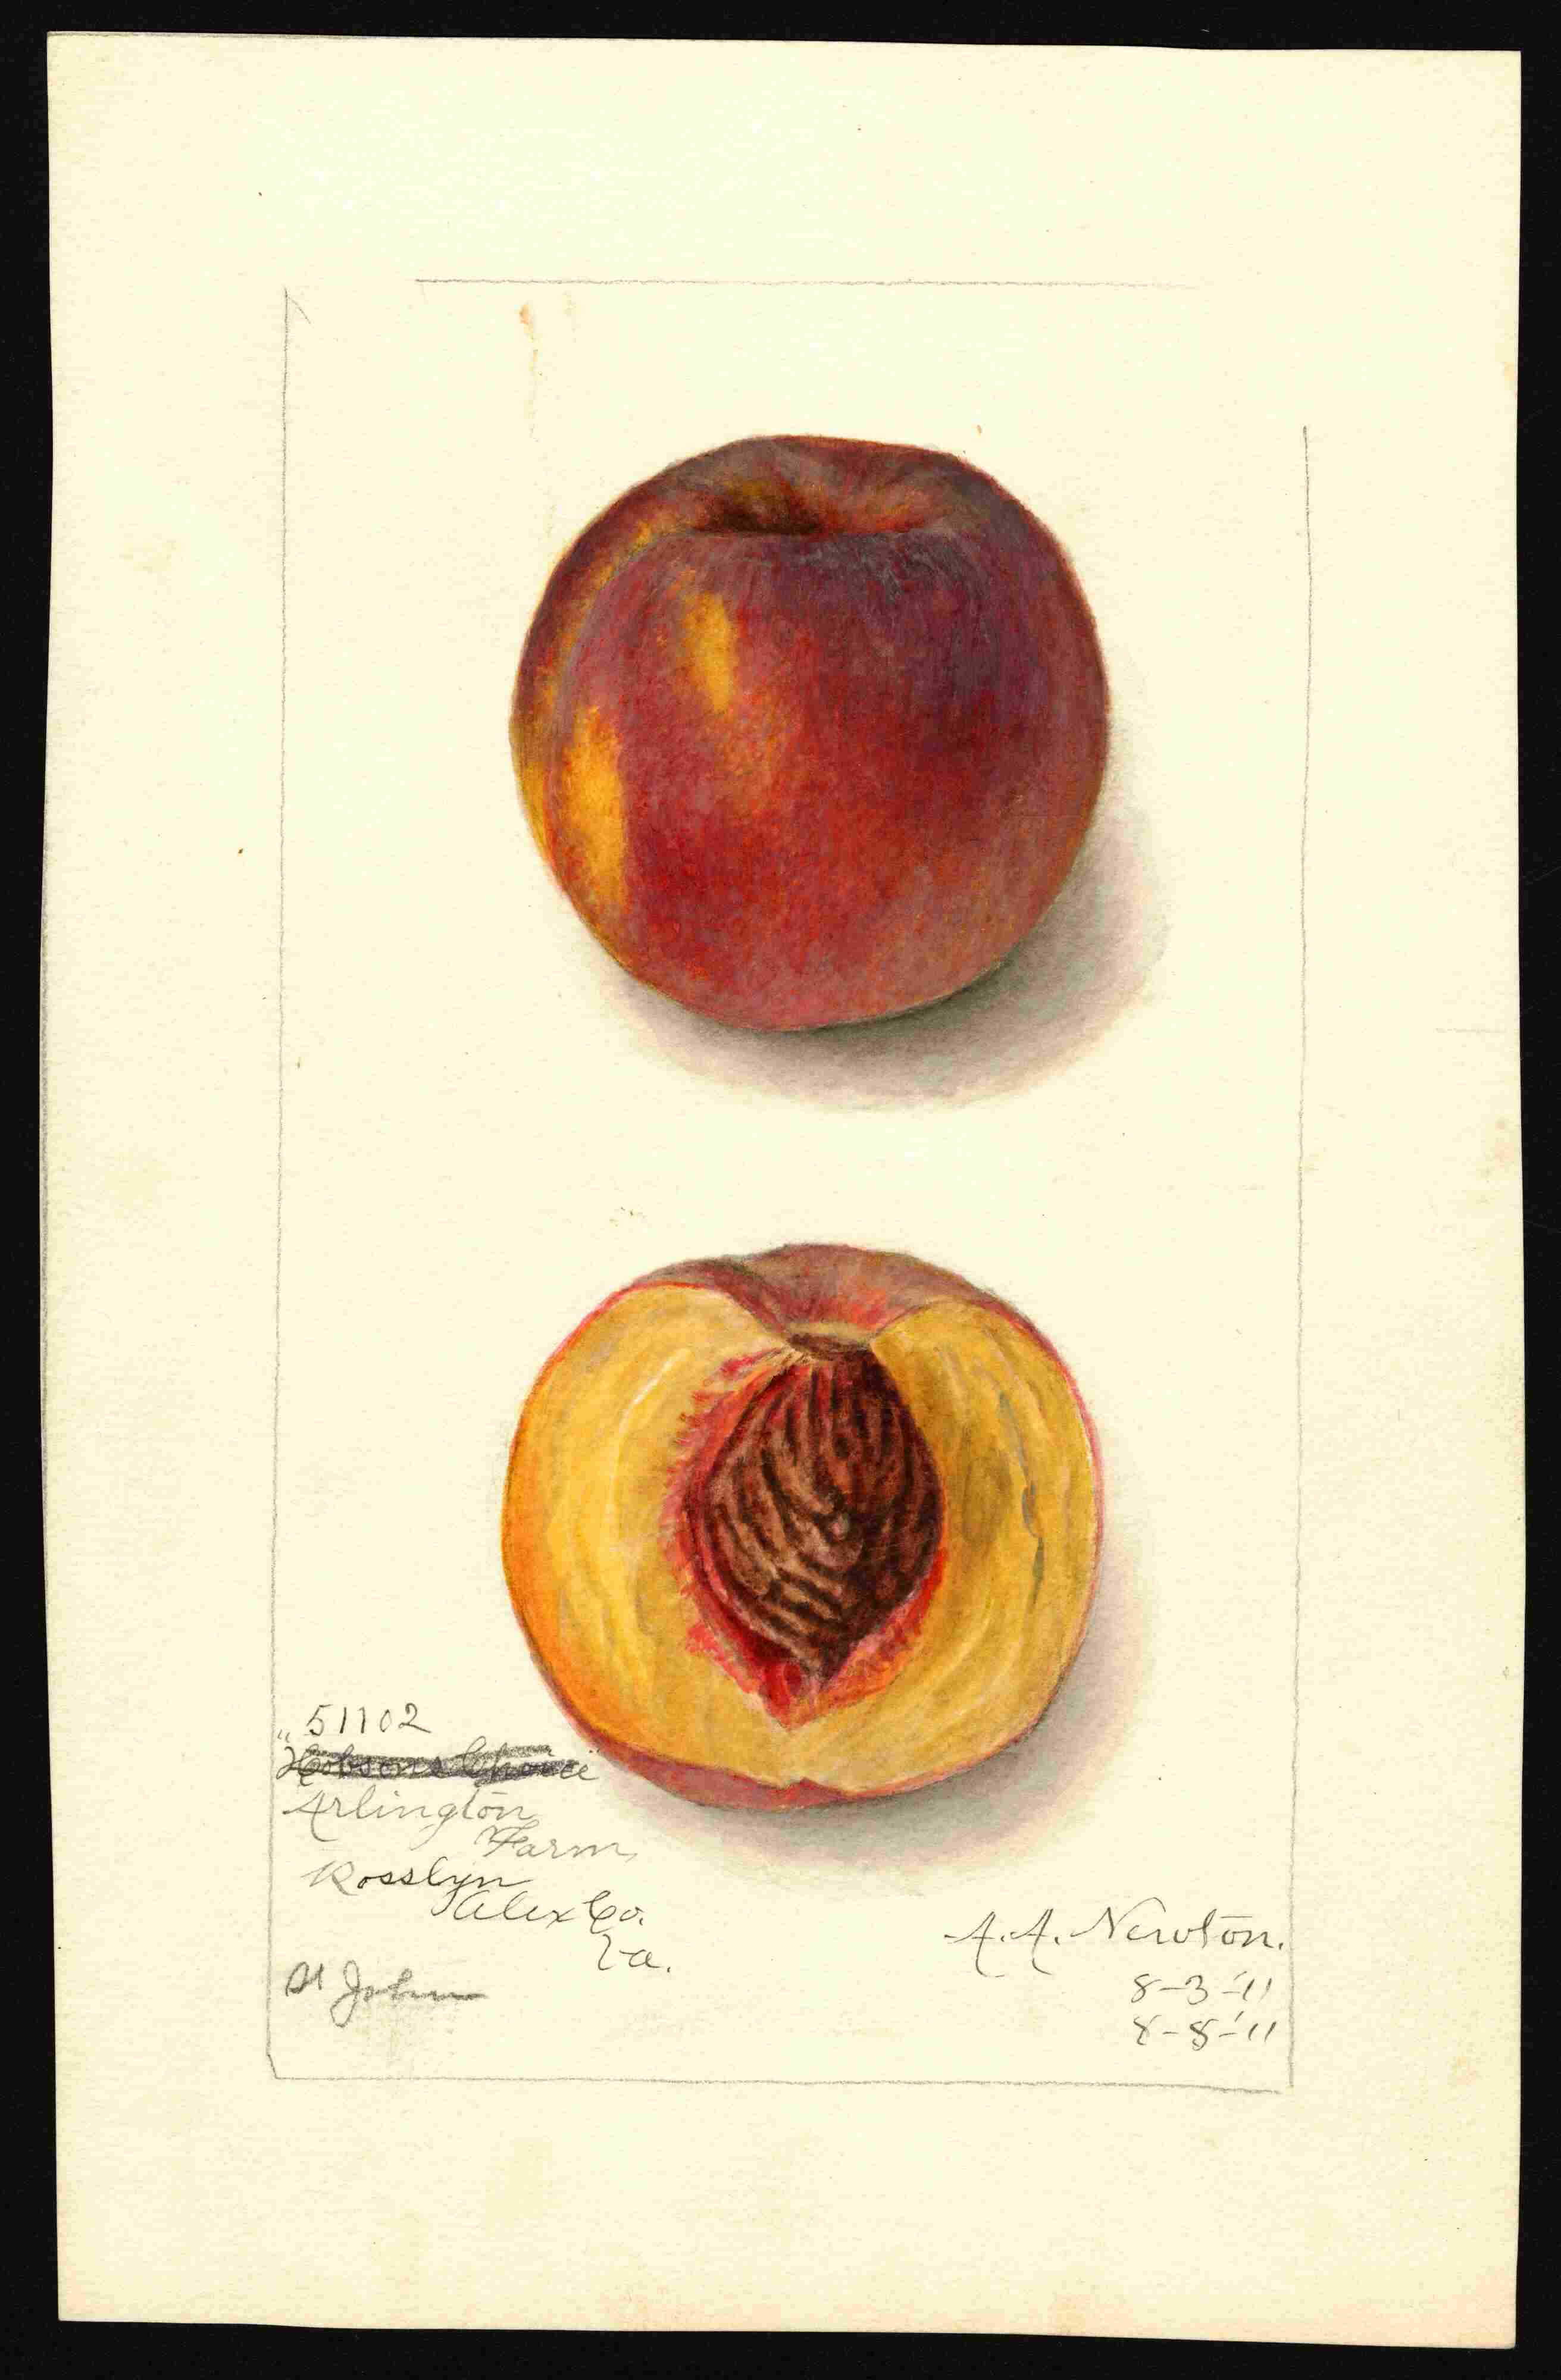 51102
"Hobsons Choice"
Arlington
Farm,
Rosslyn
Alex Co.
Va.
St John
A. A. Newton.
8-3-'11
8-8-'11